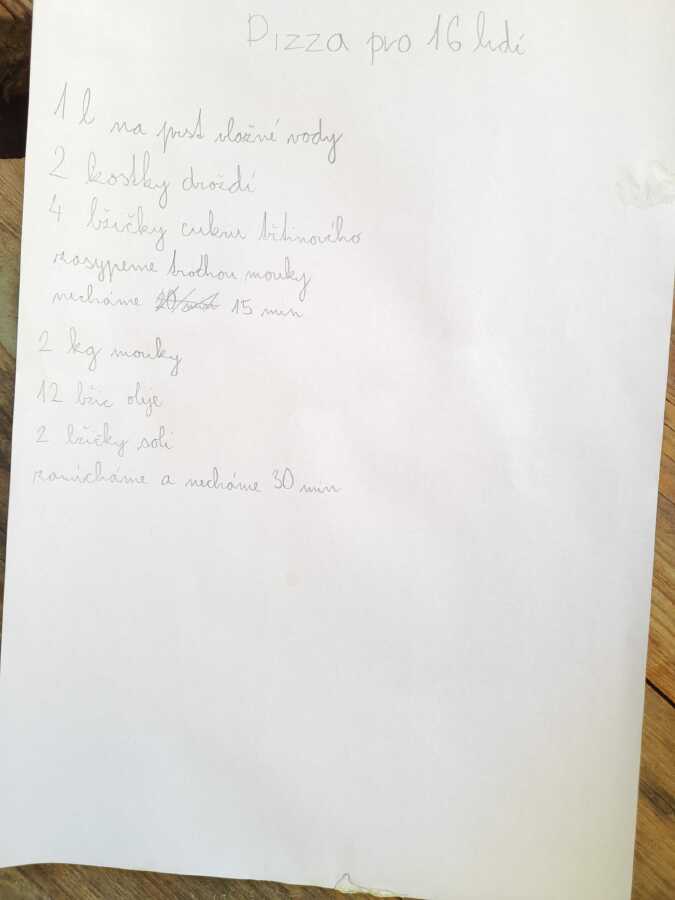 Pizza pro 16 lidí
1 l na prst vlažné vody
2 kostky droždí
4 lžičky cukru třtinového
zasypeme trochou mouky
necháme 20 min 15 min
2 kg mouky
12 lžic oleje
2 lžičky soli
zamícháme a necháme 30 min